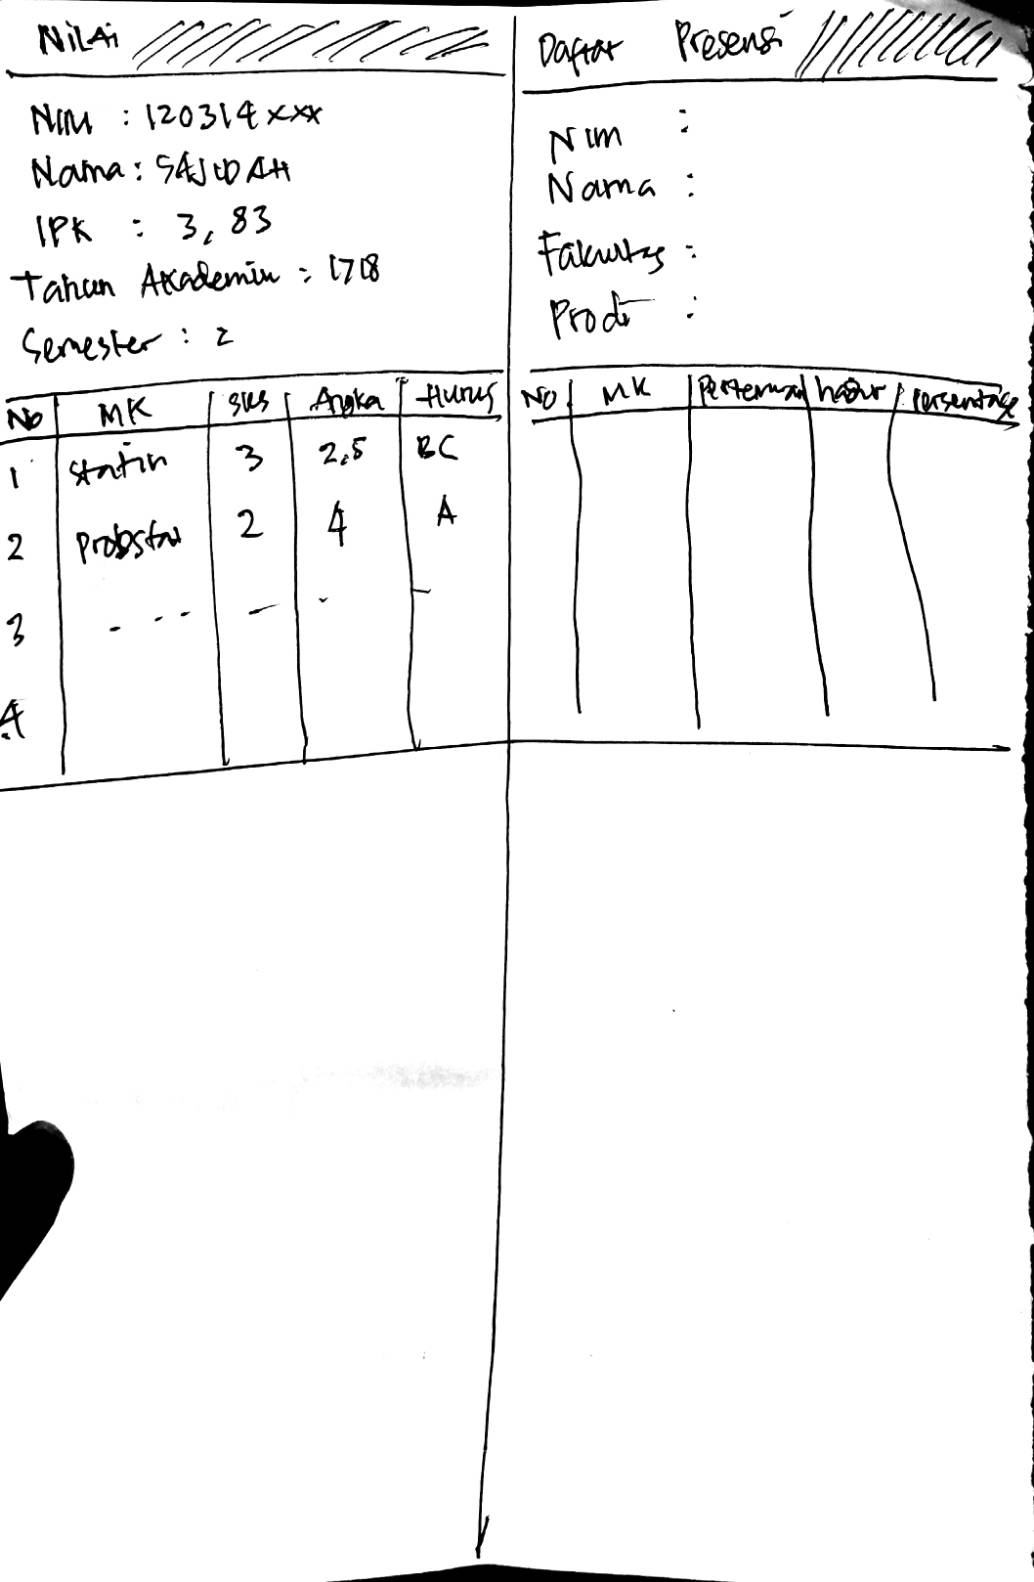 Nilai
NIM : 120314xxx
Nama : SAJIDAH
IPK : 3,83
Tahun Akademik : 1718
Semester : 2
No MK SKS Angka Huruf
1 Statin 3 2,5 BC
2 Probstat 2 4 A
3
4
Daftar Presensi
NIM :
Nama :
Fakultas :
Prodi :
No MK Pertemuan hadir Persentase